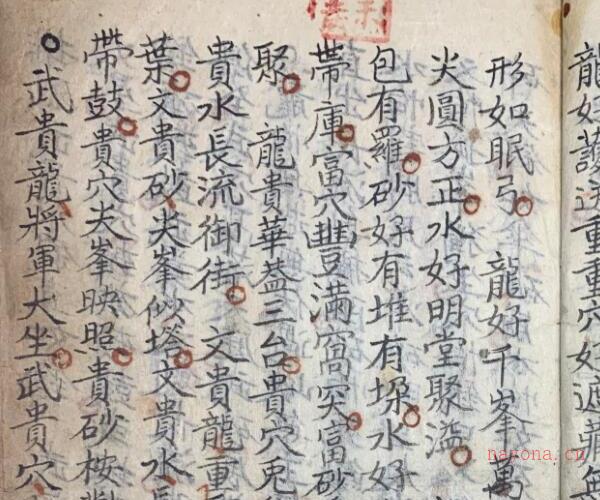 龍好護送重重穴好遮藏無
形如眠弓 龍好千峯萬
尖圓方正水好明堂聚溢
包有羅砂好有堆有垜水好
帶庫富穴豐滿窩突富砂
聚 龍貴華盖三台貴穴兎
貴水長流御街 文貴龍重
葉文貴砂尖峯似塔文貴水
帶鼓貴穴尖峯映照貴砂桉
武貴龍將軍大坐武貴穴
narona.cn